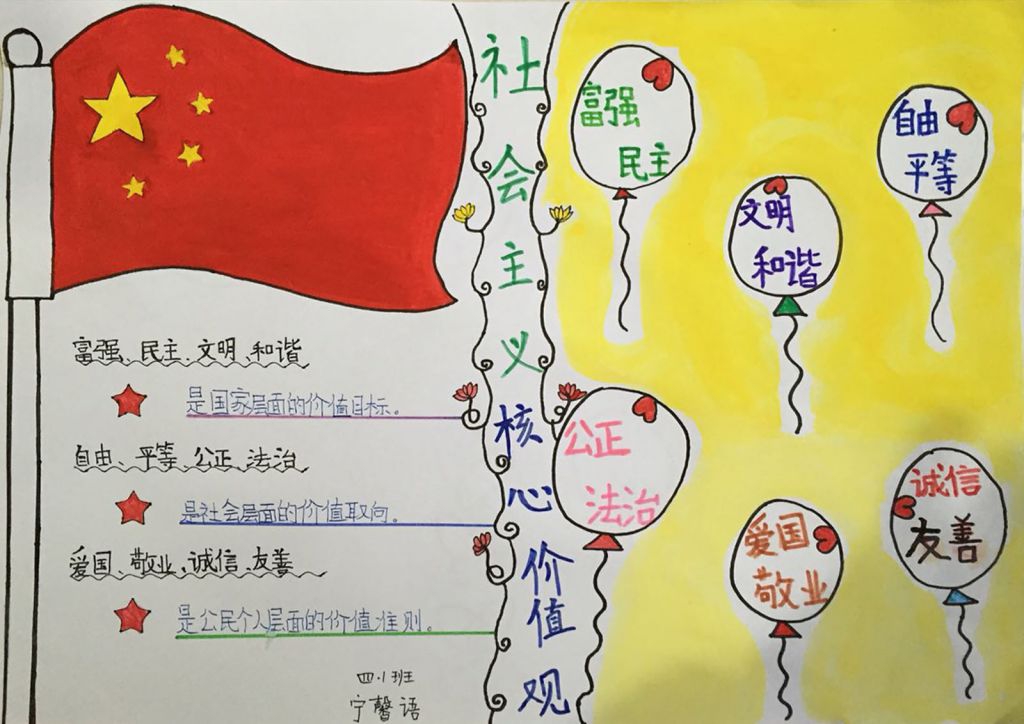 社会主义核心价值观
富强、民主、文明、和谐
是国家层面的价值目标。
自由、平等、公正、法治
是社会层面的价值取向。
爱国、敬业、诚信、友善
是公民个人层面的价值准则。
四.1班
宁馨语
富强
民主
文明
和谐
自由
平等
公正
法治
爱国
敬业
诚信
友善